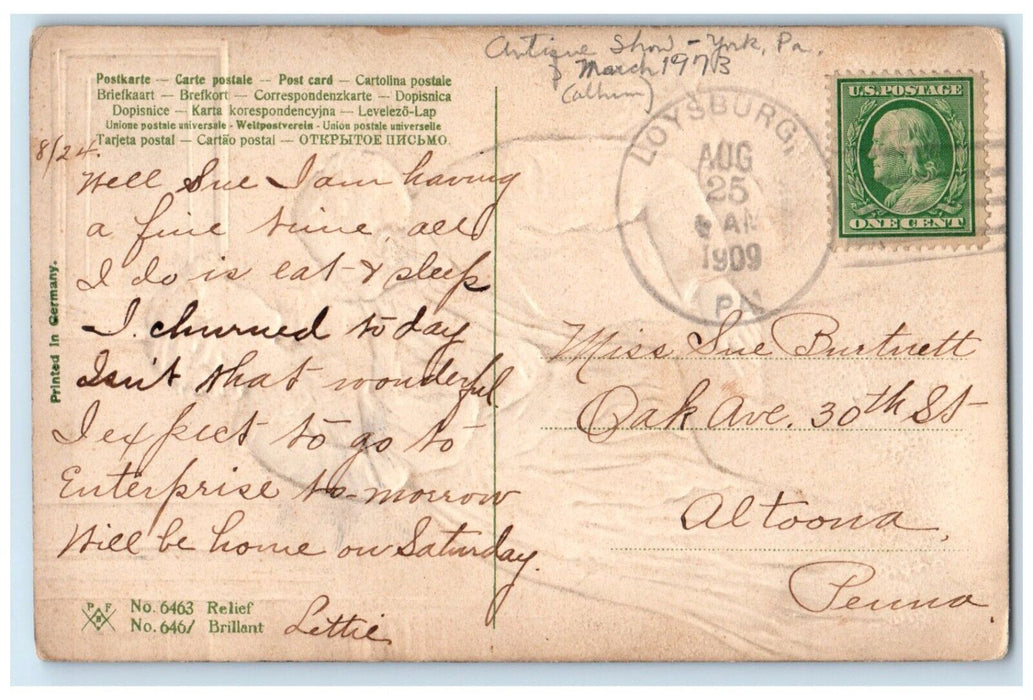 Antique Show - York, Pa.
March 1973
(album)
Postkarte — Carte postale — Post card — Cartolina postale
Briefkaart — Brefkort — Correspondenzkarte — Dopisnica
Dopisnice — Karta korespondencyjna — Levelező-Lap
Unione postale universale - Weltpostverein - Union postale universelle
Tarjeta postal — Cartão postal — ОТКРЫТОЕ ПИСЬМО.
U.S. POSTAGE
ONE CENT
LOYSBURG,
AUG
25
AM
1909
PA
8/24.
Well Sue I am having
a fine time, all
I do is eat & sleep
I churned to day
Isn't that wonderful.
I expect to go to
Enterprise to-morrow
Will be home on Saturday.
Lettie
Miss Sue Burtnett
Oak Ave. 30th St
Altoona,
Penna
Printed in Germany.
P F B
No. 6463 Relief
No. 6461 Brillant